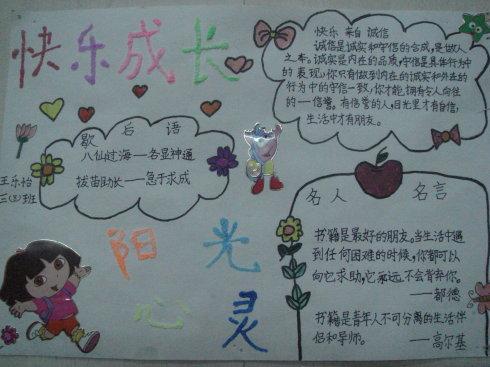 快乐成长
快乐 来自 诚信
诚信是诚实和守信的合成,是做人
之本。诚实是内在的品质,守信是具体行为中
的表现。你只有做到内在的诚实和外在的
行为中的守信一致,你才能拥有令人向往
的一一信誉。有信誉的人,目光里才有自信,
生活中才有朋友。
歇后语
八仙过海——各显神通
拔苗助长——急于求成
王乐怡
三(3)班
阳光
心灵
名人名言
书籍是最好的朋友。当生活中遇
到任何困难的时候,你都可以
向它求助,它永远不会背弃你。
——都德
书籍是青年人不可分离的生活伴
侣和导师。——高尔基